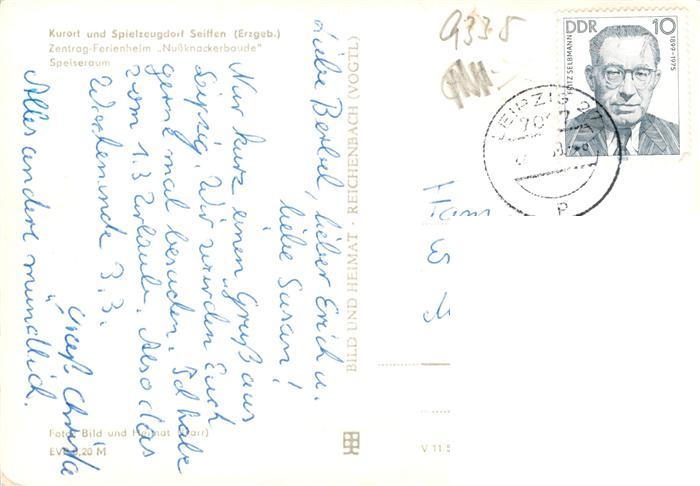 Kurort und Spielzeugdorf Seiffen (Erzgeb.)
Zentrag-Ferienheim „Nußknackerbaude"
Speiseraum
Liebe Berbel, lieber Erich u.
liebe Susan!
Nur kurz einen Gruß aus
Leipzig. Wir würden Euch
gerne mal besuchen. Ich habe
vom 1.3 Urlaub. Also das
Wochenende 3.3.
Alles andere mündlich.
Gruß Christa
Foto: Bild und Heimat
EVP 0,20 M
BILD UND HEIMAT · REICHENBACH (VOGTL)
V 11 5
9338
DDR 10
FRITZ SELBMANN
1899-1975
LEIPZIG
p